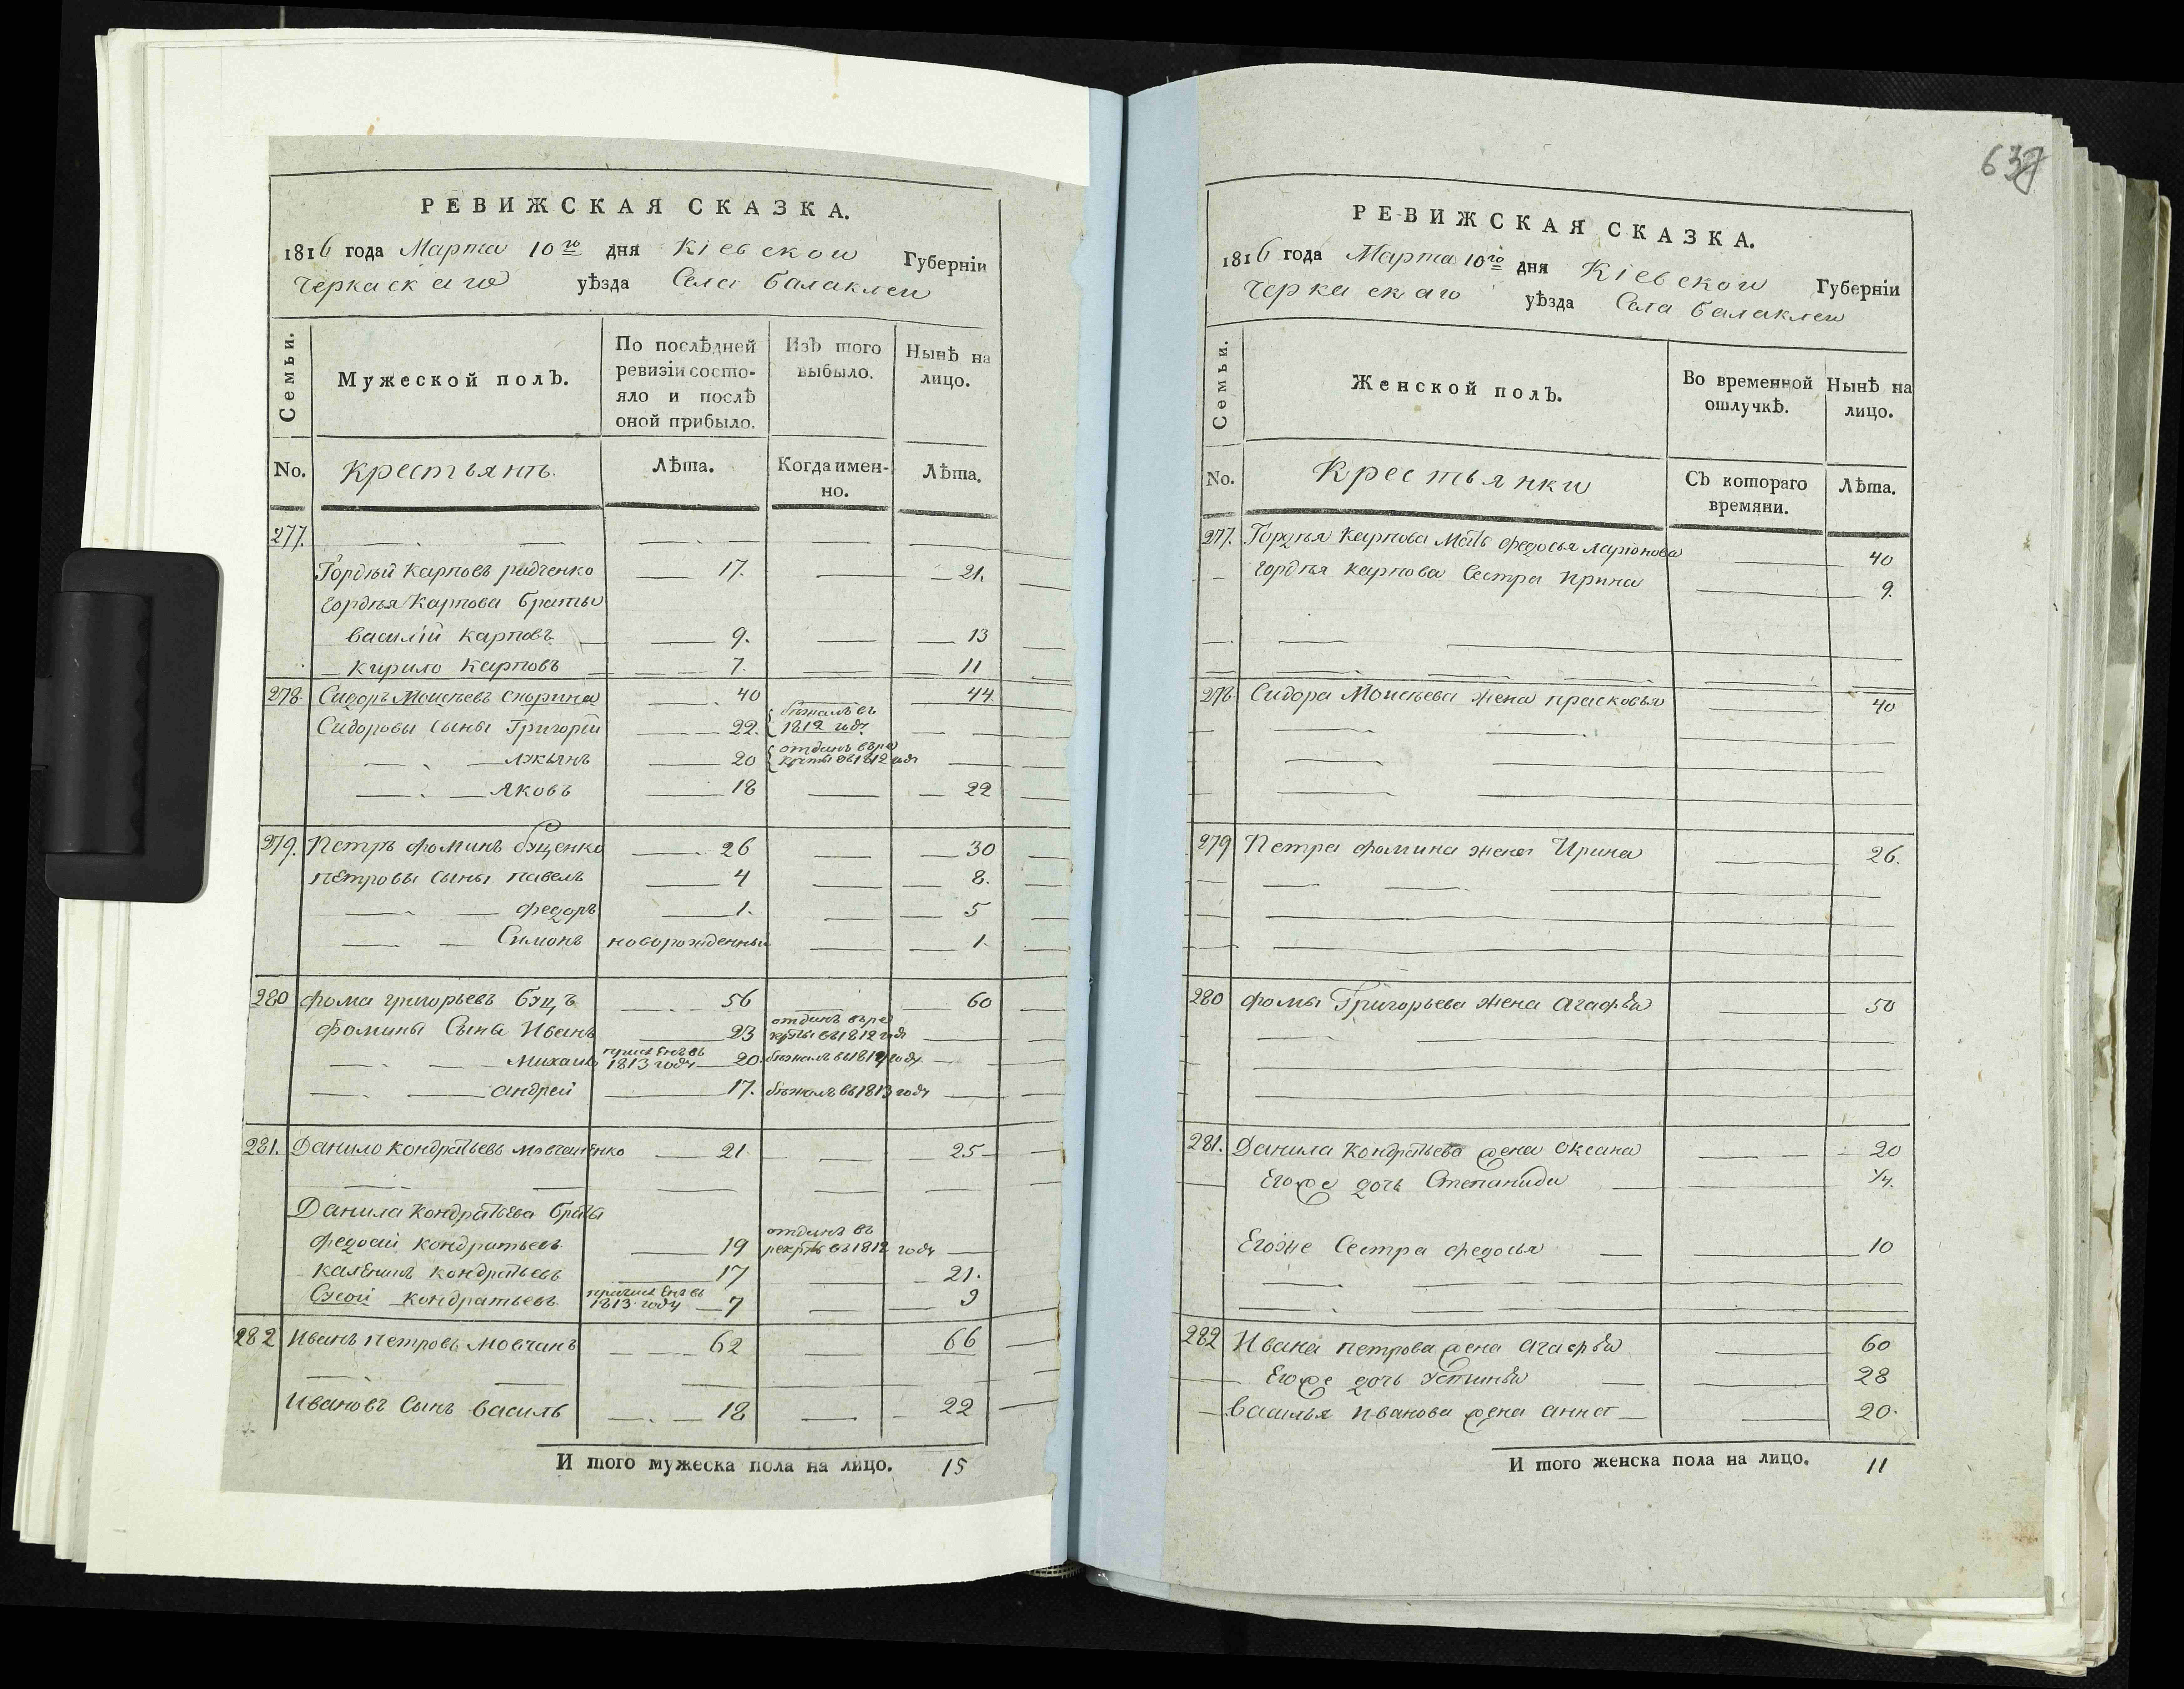 637
РЕВИЖСКАЯ СКАЗКА.
1816 года Марта 10го дня Кіевской Губерніи
Черкаскаго уѣзда Села Балаклеи
Семьи.
Мужеской полъ.
По послѣдней ревизіи состо-
яло и послѣ
оной прибыло.
Изъ того
выбыло.
Нынѣ на
лицо.
No. Крестьянъ. Лѣта. Когда имен-
но. Лѣта.
277.
Гордѣй Карповъ радченко 17. 21.
Гордѣя Карпова братья
василій карповъ 9. 13
кирило Карповъ 7. 11
278. Сидоръ Моисѣевъ Скорина 40 44.
Сидоровы сыны Григорій 22. бѣжалъ въ 1812 году
лукьянъ 20 отданъ въ рекруты въ 1812 году
Яковъ 18 22
279. Петръ фоминъ буценко 26 30
петровы сыны павелъ 4 8.
федоръ 1. 5
Симонъ новорожденный 1.
280 фома григорьевъ буцъ 56 60
фомины Сына Иванъ 23 отданъ въ рекруты въ 1812 году
Михаило 1813 году 20 бѣжалъ въ 1814 году
андрей 17. бѣжалъ въ 1813 году
281. Данило кондратьевъ мовчаненко 21 25
Данила Кондратьева братья
федосій кондратьевъ 19 отданъ въ рекруты въ 1812 году
каленикъ кондратьевъ 17 21.
Сысой кондратьевъ 1813 году 7 9
282 Иванъ петровъ мовчанъ 62 66
Ивановъ Сынъ василь 18 22
И того мужеска пола на лицо. 15
РЕВИЖСКАЯ СКАЗКА.
1816 года Марта 10го дня Кіевской Губерніи
Черкаскаго уѣзда Села Балаклеи
Семьи.
Женской полъ.
Во временной
отлучкѣ.
Нынѣ на
лицо.
No. Крестьянки Съ котораго
времяни. Лѣта.
277. Гордѣя Карпова мать федосья ларіонова 40
Гордѣя карпова Сестра Ирина 9.
278. Сидора Моисѣева жена прасковья 40
279 Петра фомина жена Ирина 26.
280 фомы Григорьева жена агафья 50
281. Данила Кондратьева жена Оксана 20
Егоже дочь Степанида 1/4.
Егоже Сестра федосья 10
282 Ивана петрова жена агафья 60
Егоже дочь устинья 28
василья иванова жена анна 20.
И того женска пола на лицо. 11